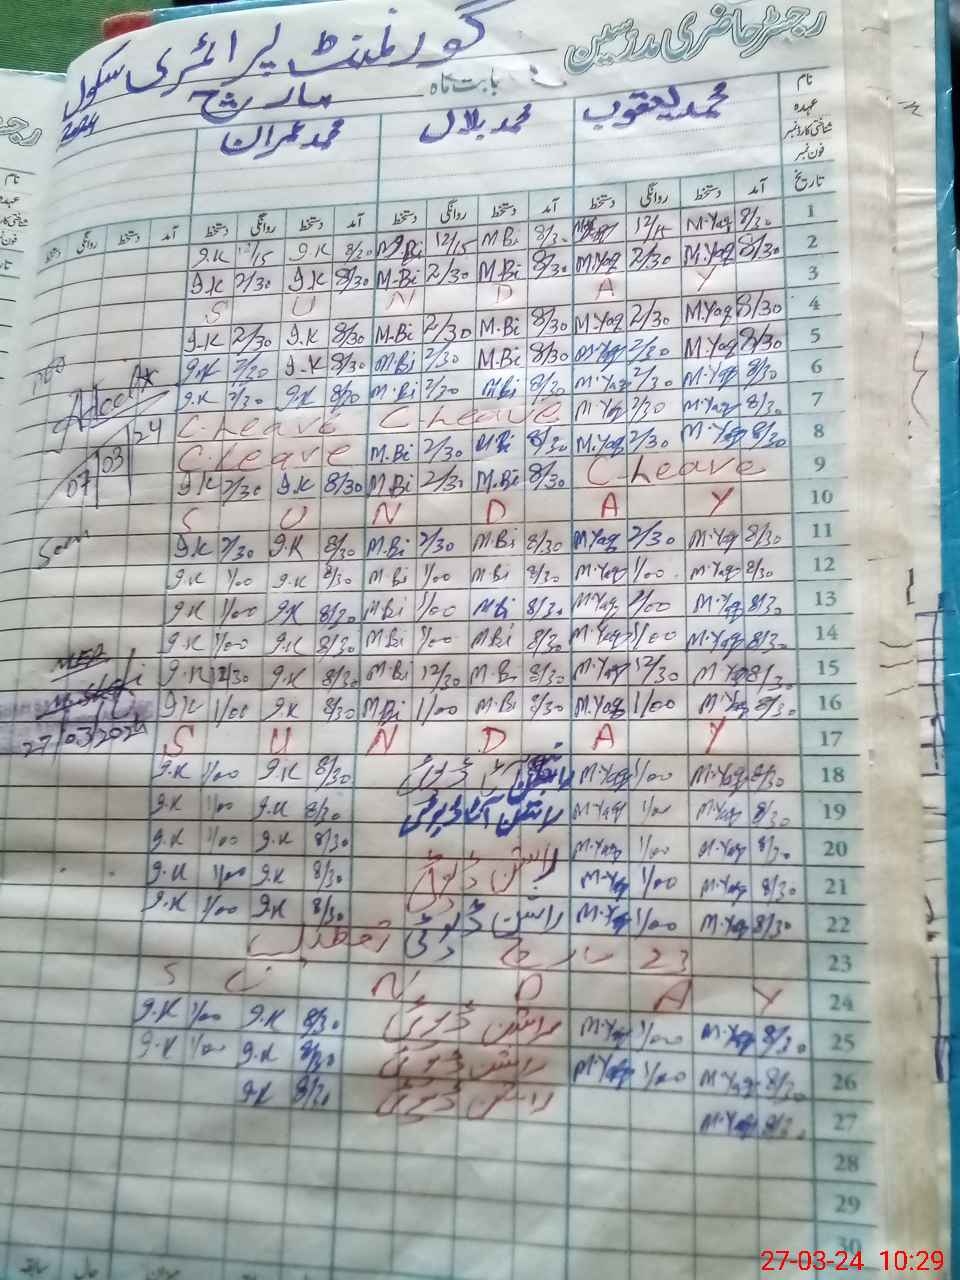 رجسٹر حاضری مدرسین
گورنمنٹ پرائمری سکول
بابت ماہ مارچ
2024
نام محمد یعقوب محمد بلال محمد عمران
عہدہ
شناختی کارڈ نمبر
فون نمبر
تاریخ آمد دستخط روانگی دستخط آمد دستخط روانگی دستخط آمد دستخط روانگی دستخط آمد دستخط روانگی دستخط
1 8/30 M.Yaq 12/15 8/30 M.Bi 12/15 M.Bi 8/30 I.K 12/15 I.K
2 8/30 M.Yaq 2/30 M.Yaq 8/30 M.Bi 2/30 M.Bi 8/30 I.K 2/30 I.K
3 S U N D A Y
4 8/30 M.Yaq 2/30 M.Yaq 8/30 M.Bi 2/30 M.Bi 8/30 I.K 2/30 I.K
5 8/30 M.Yaq 2/30 M.Yaq 8/30 M.Bi 2/30 M.Bi 8/30 I.K 2/30 I.K
6 8/30 M.Yaq 2/30 M.Yaq 8/30 M.Bi 2/30 M.Bi 8/30 I.K 2/30 I.K
7 8/30 M.Yaq 2/30 M.Yaq C.Leave C.Leave
8 8/30 M.Yaq 2/30 M.Yaq 8/30 M.Bi 2/30 M.Bi C.Leave
07 03 24
9 C.Leave 8/30 M.Bi 2/30 M.Bi 8/30 I.K 2/30 I.K
10 S U N D A Y
11 8/30 M.Yaq 2/30 M.Yaq 8/30 M.Bi 2/30 M.Bi 8/30 I.K 2/30 I.K
12 8/30 M.Yaq 1/00 M.Yaq 8/30 M.Bi 1/00 M.Bi 8/30 I.K 1/00 I.K
13 8/30 M.Yaq M.Yaq 8/30 M.Bi 1/00 M.Bi 8/30 I.K 1/00 I.K
14 8/30 M.Yaq 1/00 M.Yaq 8/30 M.Bi 1/00 M.Bi 8/30 I.K 1/00 I.K
15 8/30 M.Yaq 12/30 M.Yaq 8/30 M.Bi 12/30 M.Bi 8/30 I.K 12/30 I.K
16 8/30 M.Yaq 1/00 M.Yaq 8/30 M.Bi 1/00 M.Bi 8/30 I.K 1/00 I.K
27/03/2024
17 S U N D A Y
18 8/30 M.Yaq 1/00 M.Yaq راشن ڈیوٹی 8/30 I.K 1/00 I.K
19 8/30 M.Yaq 1/00 M.Yaq راشن ڈیوٹی 8/30 I.K 1/00 I.K
20 8/30 M.Yaq 1/00 M.Yaq راشن ڈیوٹی 8/30 I.K 1/00 I.K
21 8/30 M.Yaq 1/00 M.Yaq 8/30 I.K 1/00 I.K
22 8/30 M.Yaq 1/00 M.Yaq راشن ڈیوٹی 8/30 I.K 1/00 I.K
23 23 مارچ تعطیل
24 S U N D A Y
25 8/30 M.Yaq 1/00 M.Yaq راشن ڈیوٹی 8/30 I.K 1/00 I.K
26 8/30 M.Yaq 1/00 M.Yaq راشن ڈیوٹی 8/30 I.K 1/00 I.K
27 8/30 M.Yaq راشن ڈیوٹی 8/30 I.K
28
29
30
27-03-24 10:29